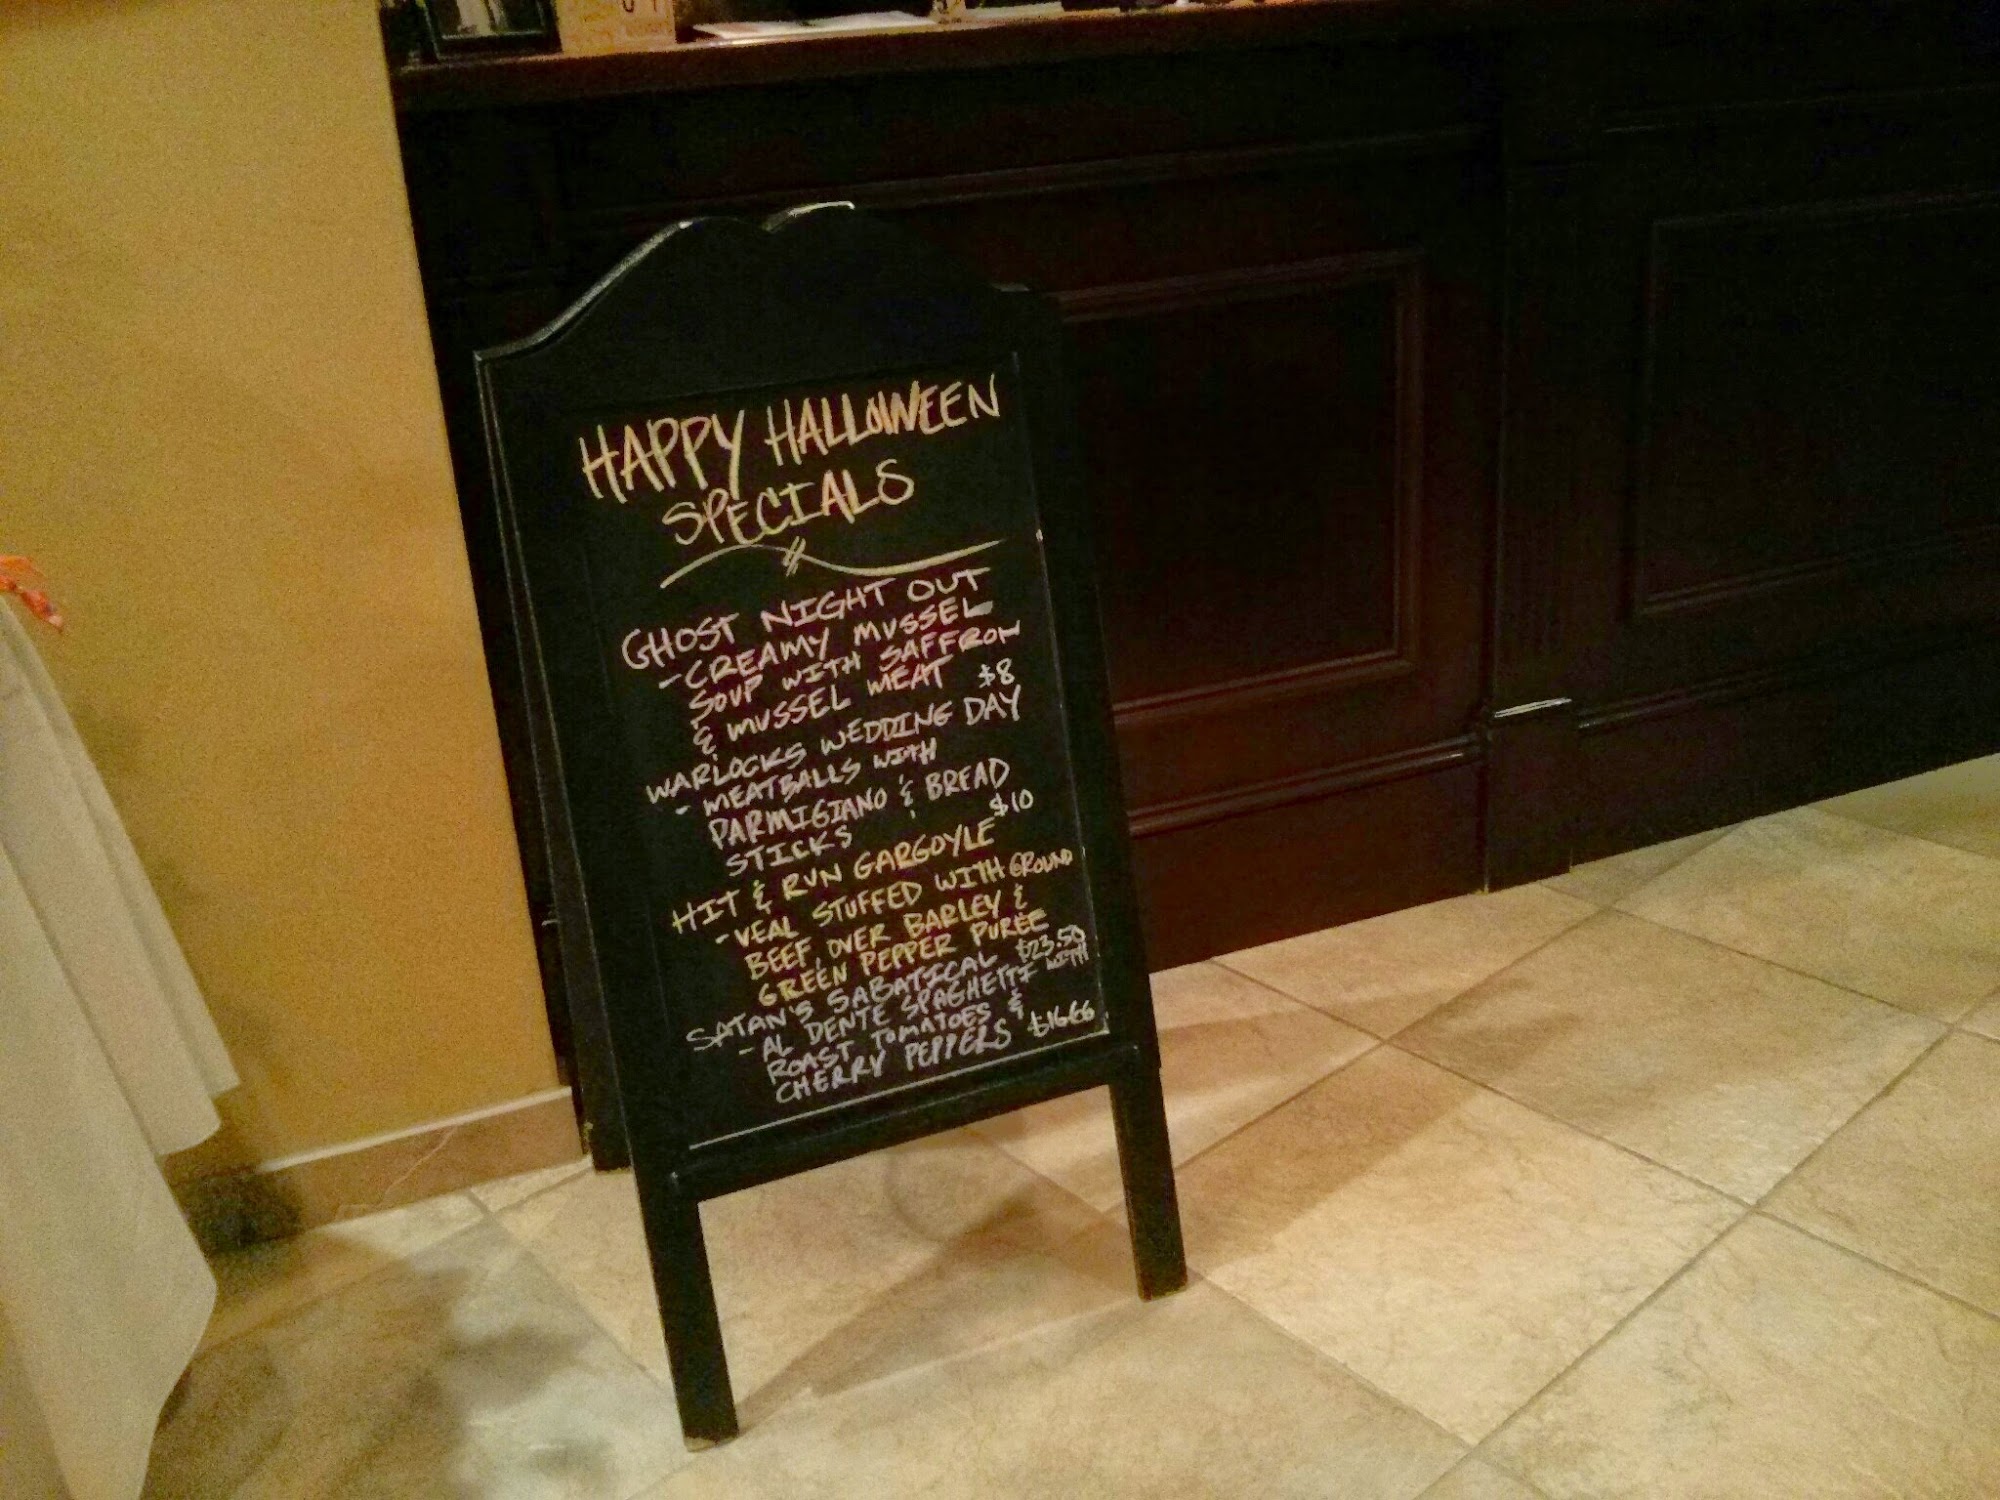 HAPPY HALLOWEEN
SPECIALS
GHOST NIGHT OUT
-CREAMY MUSSEL
SOUP WITH SAFFRON
& MUSSEL MEAT $8
WARLOCKS WEDDING DAY
- MEATBALLS WITH
PARMIGIANO & BREAD
STICKS $10
HIT & RUN GARGOYLE
-VEAL STUFFED WITH GROUND
BEEF, OVER BARLEY &
GREEN PEPPER PURÉE
$23.50
SATAN'S SABATICAL
-AL DENTE SPAGHETTI WITH
ROAST TOMATOES &
CHERRY PEPPERS $16.66